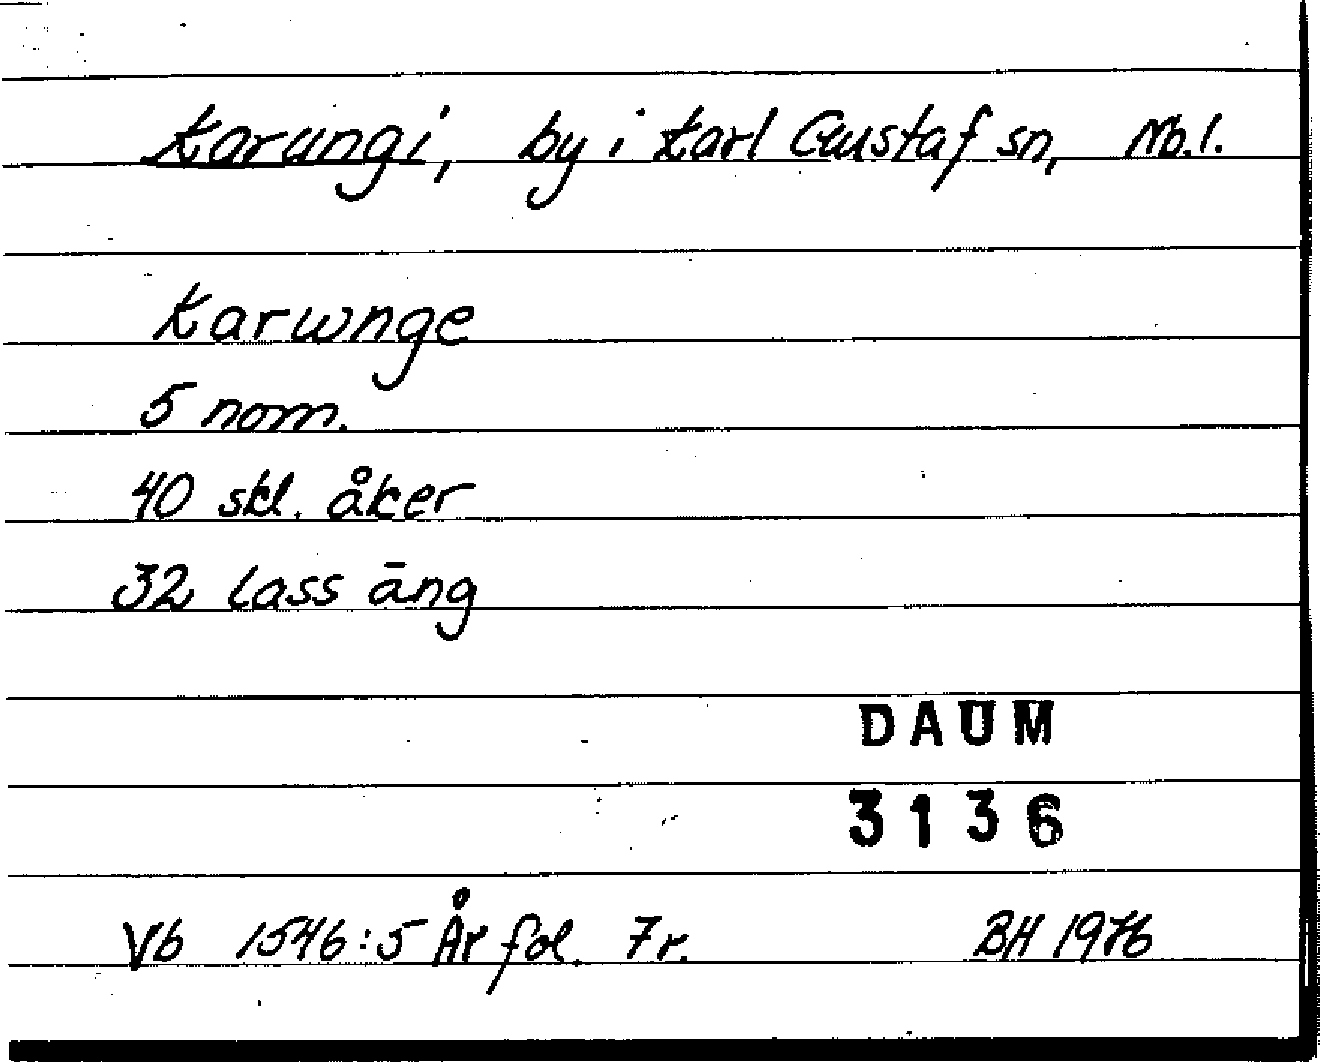 Karungi, by i Karl Gustaf sn, Nb.l.
Karwnge
5 nom.
40 skl. åker
32 lass äng
DAUM
3136
Vb 1546:5 År fol. 7r. BH 1976